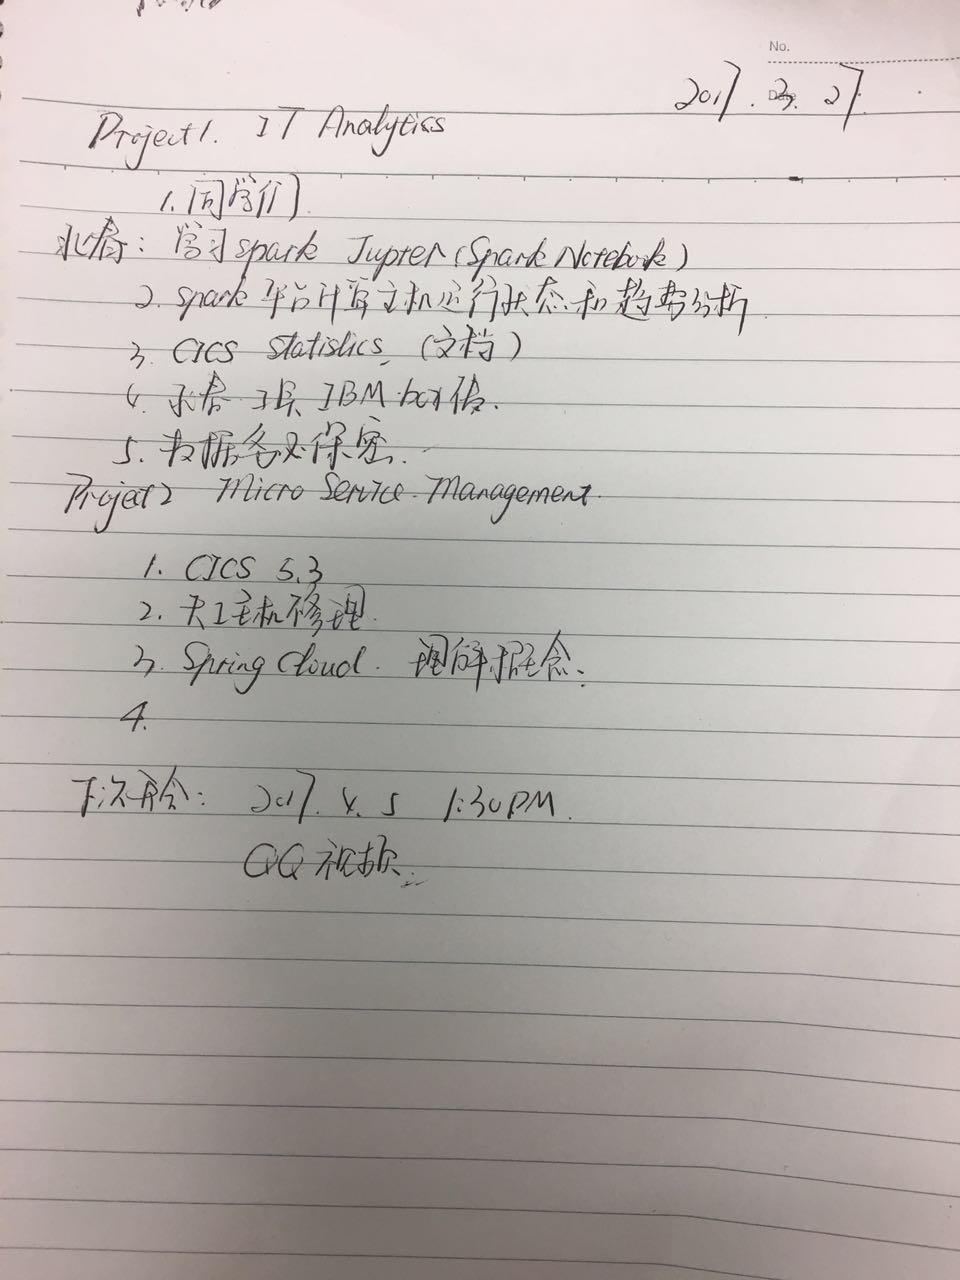 No.
Date
2017. 3. 27
Project1. IT Analytics
1. 同学们
永春: 学习spark Jupter (Spark Notebook)
2. spark 平台计算主机运行状态和趋势分析
3. CICS Statistics. (文档)
4. 永春 IBM box
5. 数据务必保密.
Project2 Micro Service Management.
1. CICS 5.3
2. 主机修理
3. Spring Cloud. 理解概念.
4.
下次开会: 2017. 4. 5 1:30PM.
QQ 视频.